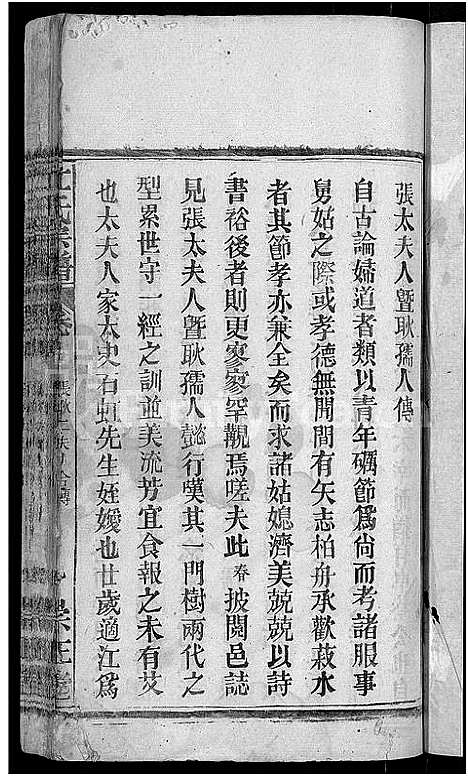 張太夫人暨耿孺人傳
自古論婦道者類以青年礪節爲尙而考諸服事
舅姑之際或孝德無聞間有矢志柏舟承歡菽水
者其節孝亦兼全矣而求諸姑媳濟美兢兢以詩
書裕後者則更寥寥罕觀焉嗟夫此春披閱邑誌
見張太夫人暨耿孺人懿行嘆其一門樹兩代之
型累世守一經之訓並美流芳宜食報之未有艾
也太夫人家太史石虹先生姪嬡也廿歲適江爲